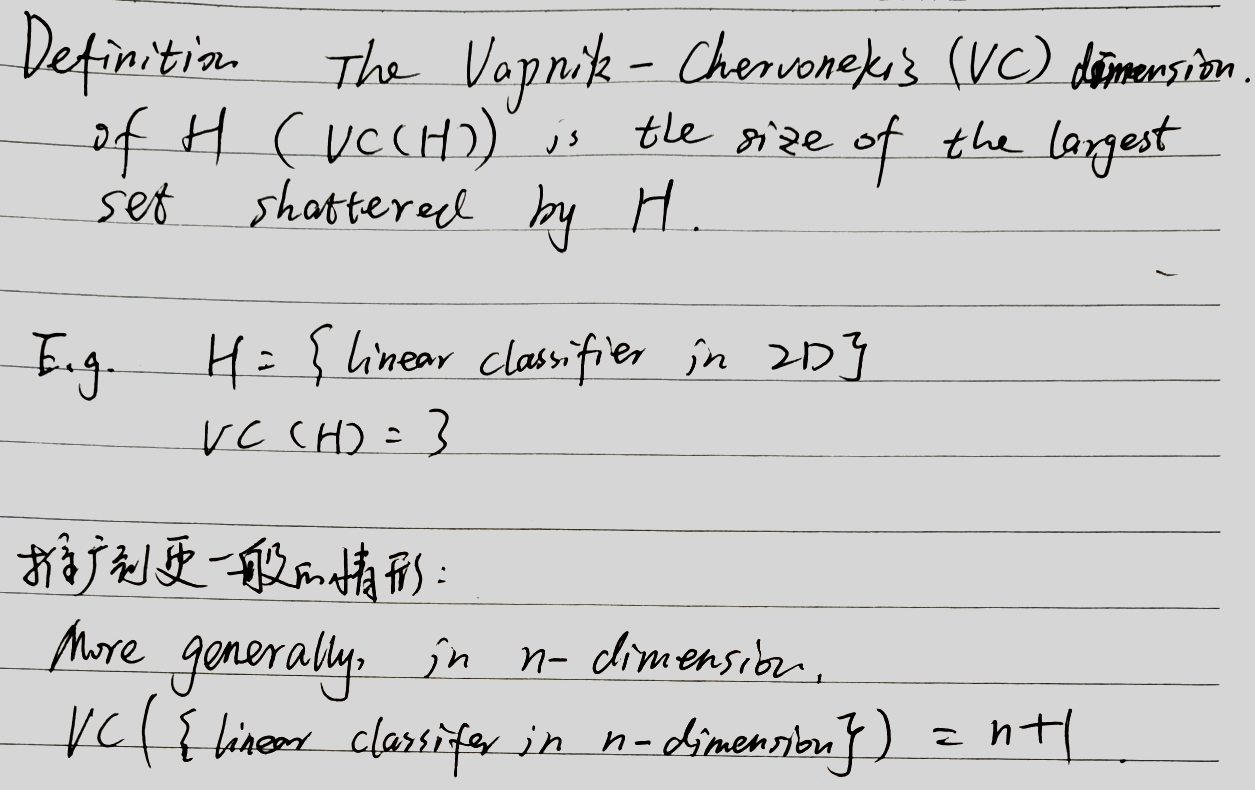 Definition The Vapnik - Chervonekis (VC) dimension.
of H (VC(H)) is the size of the largest
set shattered by H.
E.g. H = { linear classifier in 2D }
VC (H) = 3
推广到更一般的情形:
More generally, in n- dimension,
VC ( { linear classifer in n-dimension } ) = n+1.